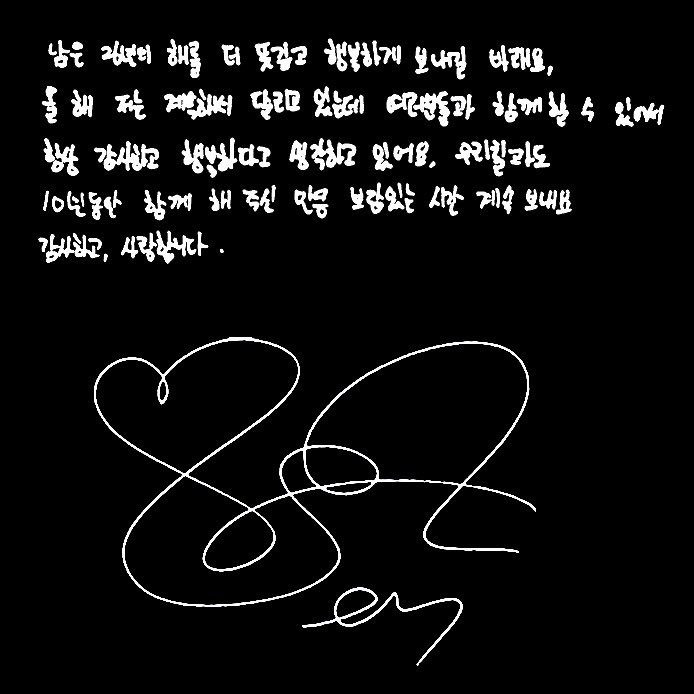 남은 26년의 해를 더 뜻깊고 행복하게 보내길 바래요,
올 해 저는 계획해서 달리고 있는데 여러분들과 함께할 수 있어서
항상 감사하고 행복하다고 생각하고 있어요, 우리팀과도
10년동안 함께 해 주신 만큼 보람있는 시간 계속 보내요
감사하고, 사랑합니다.